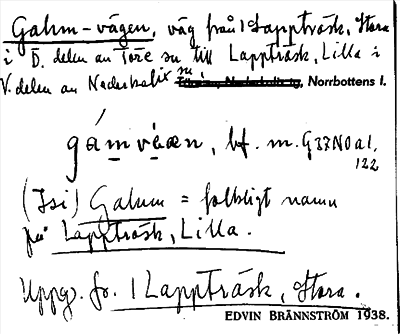 Gahm-vägen, väg från 1 Lappträsk, Stora
i Ö. delen av Töre sn till Lappträsk, Lilla i
V. delen av Nederkalix sn, Norrbottens l.
gámvéæn, bf. m. G37N0a1,
122
Gahm = folkligt namn
på Lappträsk, Lilla.
Uppg. fr. 1 Lappträsk, Stora.
EDVIN BRÄNNSTRÖM 1938.